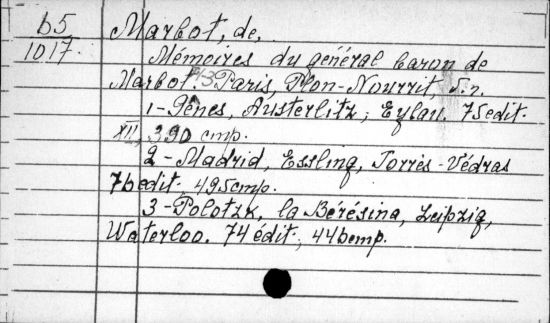 b5
1017.
Marbot, de,
Mémoires du général baron de
Marbot. 1-3 Paris, Plon-Nourrit, s.n.
1-Gênes, Austerlitz, Eylau. 75 edit.
XII, 390 cmp.
2-Madrid, Essling, Torrès-Védras
76 edit. 495 cmp.
3-Polotzk, la Bérésina, Leipzig,
Waterloo. 74 édit., 446 cmp.